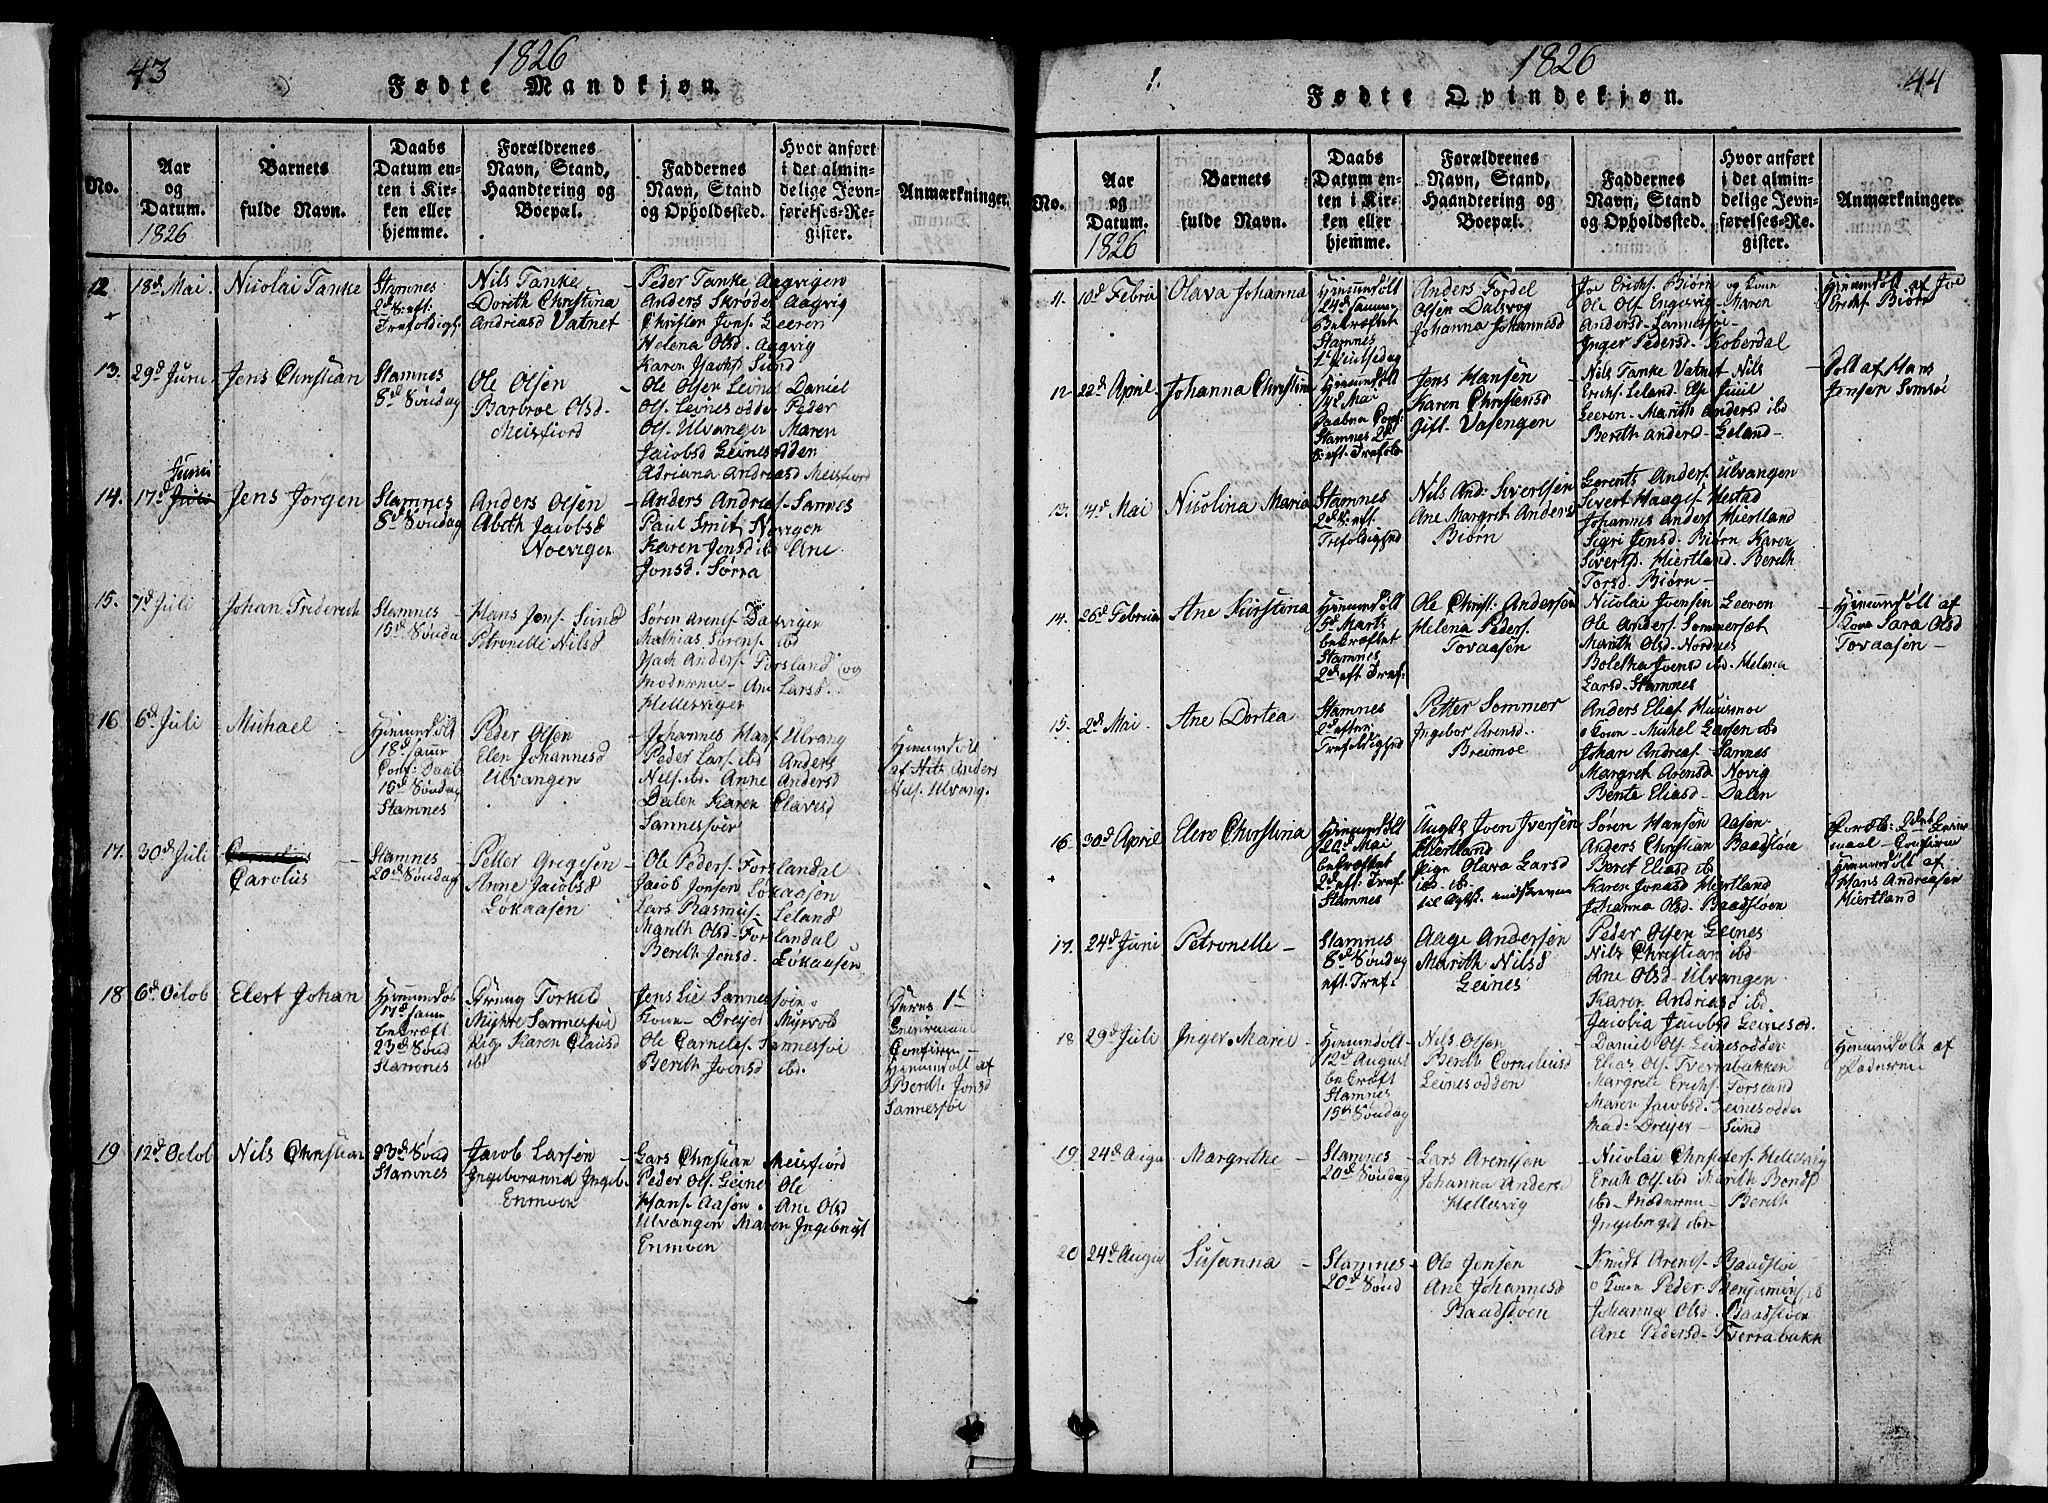 43
1826
Fødte Mandkjøn.
No.
Aar
og
Datum.
1826
Barnets
fulde Navn.
Daabs
Datum en-
ten i Kir-
ken eller
hjemme.
Forældrenes
Navn, Stand,
Haandtering og
Boepæl.
Faddernes
Navn, Stand
og Opholdssted.
Hvor anført
i det almin-
delige Jevn-
førelses-Re-
gister.
Anmærkninger.
12
18d Mai
Nicolai Tanke
Stamnes
2d S: eft.
Trefoldigh
Nils Tanke
Dorith Christina
Andreasd Vatnet
Peder Tanke Aagvigen
Anders Skrøder Aagvig
Christen Jons. Leeren
Helena Olsd. Aagvig
Karen Isachs Sund
13.
29d Juni
Jens Christian
Stamnes
8d Søndag
Ole Olsen
Barbroe Olsd.
Meisfiord
Ole Olsen Leines Daniel
Ols. Leinesodde Peder
Ols. Ulvangen Maren
Jacobsd Leinesodden
Adriana Andreasd Meisfiord
14.
Juni
17d Juli
Jens Jørgen
Stamnes
8d Søndag
Anders Olsen
Abeth Jacobsd
Noeviger
Anders Andreas. Sannes
Paul Smit Noviger
Karen Jensd ib Ane
Jonsd. Sørra
15.
7d Juli
Johan Frederich
Stamnes
15d Søndag
Hans Jons. Sund
Petronelle Nilsd
Søren Arents Dalsvigen
Mathias Sørens. ibd
Isach Anders. Forsland og
Moderen - Ane Larsd.
Hellesvigen
16.
6d Juli
Michael
Hjemmedøbt
18d samme
Conf: Daab
15d Søndag
Stamnes
Peder Olsen
Elen Johannesd
Ulvangen
Johannes Hans. Ulvang
Peder Lars. ibd Anders
Nils. ibd. Anne Andersd
Dalen Karen Clavesd
Sannessøir
Hjemmedøbt
af Anders
Nils. Ulvang.
17.
30d Juli
Cornelius
Carolus
Stamnes
20d Søndag
Petter Gregesen
Anne Jacobsd
Løkaasen
Ole Peders. Forslandal
Jacob Jonsen Løkaasen
Lars Rasmus. Leland
Marith Olsd. Forslandal
Berith Jensd. Løkaasen
18
6d Octob
Elert Johan
Hjemmedøb
17d samme
bekræft
23d Sønd
Stamnes
Dreng Torkild
Myhre Sannessøi
Pig. Karen Clausd
ibd
Jens Lie Sannessøen o
Kone - Dreyer Myrvold
Ole Carnelef. Sannessøi
Berith Ivensd ibd.
Deres 1te
Leiermaal
Confiren
Hjemmedøbt af
Berith Jonsd
Sannessøi
19
12d Octob
Nils Christian
23d Sønd
Stamnes
Jacob Larsen
Ingeboranna Ingeb.
Enmoen
Lars Christian Meisfiord
Peder Ols. Leines Ole
Hans. Aasen. Ane Olsd
Ulvangen Maren Ingebrigt
Enmoen
1826
44
Fødte Qvindekjøn.
No.
Aar
og
Datum.
1826
Barnets
fulde Navn.
Daabs
Datum en-
ten i Kir-
ken eller
hjemme.
Forældrenes
Navn, Stand,
Haandtering og
Boepæl.
Faddernes
Navn, Stand
og Opholdssted.
Hvor anført
i det almin-
delige Jevn-
førelses-Re-
gister.
Anmærkninger.
11.
10d Febru
Olava Johanna
Hjemmedøbt
24d samme
Bekræftet
Stamnes
1d Pintsedag
Anders Fordel
Olsen Dalsvog
Johanna Johannesd
Joe Erichs. Biørn og Kone
Ole Ols. Engesvig. Maren
Andersd. Sannessøi
Inger Pedersd. Koberdal
Hjemmedøbt af Joe
Erichs. Biørn
12
22d April
Johanna Christina
Hjemmedøbt
14d Mai
Daaben Conf:
Stamnes 2d
S: eft. Trefold
Jens Hansen
Karen Christensd
Gift. Vasengen
Nils Tanke Vatnet Nils
Erichs. Leland. Els Juul
Leeren - Marith Andersd ibd
Berith Andersd - Leland -
Døbt af Hans
Jensen Somsøe
13.
14d Mai
Nicolina Maria
Stamnes
2d S: eft
Trefoldighed
Nils And: Sivertsen
Ane Margret Andersd
Biørn
Lorents Anders. Ulvangen
Sivert Haages. Mestad
Johannes Anders. Miertland
Sigri Jensd. Biørn Karen
Sivertsd. Miertland. Berith
Torsd. Biørn -
14.
26d Februar
Ane Kirstina
Hjemmedøbt
5d Marts
bekræftet
Stamnes
2d eft. Tref:
Ole Christ: Andersen
Helena Peders.
Tovaasen
Nicolai Ivensen Leeren
Ole Anders. Sommersæt
Marith Olsd. Nordnes
Boletha Ivensd ibd. Helena
Larsd. Stamnes
Hjemmedøbt af
Kone Sara Olsd
Tovaasen -
15.
2d Mai
Ane Dortea
Stamnes
2d efter
Trefoldighed
Petter Sommer
Ingebor Arensd.
Bremnoe
Anders Elias Huusmoe
o Kone - Michel Larsen ibd
Johan Andreas. Sannes
Margret Arensd. Novig
Bente Eliasd. Dalen
16
30d April
Elen Christina
Hjemmedøbt
20d Mai
bekræftet
2d eft: Tref
Stamnes
Ungk. Iven Iversen
Miertland
Pige Olava Larsd
ibd - ib.
Søren Hansen Aasen
Anders Christian Baadstoe
Beret Eliasd ib
Karen Jonasd Miertland
Johanna Olsd. Baadstoen
Foræld: 2det Leier
maal - Confirm
Hjemmedøbt af
Hans Andreasen
Miertland
17.
24d Juni
Petronelle
Stamnes
8d Søndag
eft. Tref.
Aage Andersen
Marith Nilsd
Leines
Peder Olsen Leines
Nils Christian ibd
Ane Olsd. Ulvangen
Karen Andreasd ibd
Jacobia Jacobsd Leinesod.
18
29d Juli
Inger Marie
Hjemmedøbt
12d August
bekræft
Stamnes
15d Søndag
Nils Olsen
Berith Corneliusd
Leinesodden
Daniel Ols. Leinesodden
Elias Ols. Tverrabakken
Margrete Erichs. Forsland
Maren Jacobsd. Leinesodden
Mad: Dreyer - Sund
Hjemmedøbt af
Faderen
19
24d Augu
Margrethe
Stamnes
20d Søndag
Lars Arentsen
Johanna Andersd
Hellesvig
Nicolai Chr. Peders. Hellesvig
Erich Ols. ibd Marith
ibd - Moderen - Berith
Ingebrigt ibd
20
24d Augu
Susanna
Stamnes
20d Sønd
Ole Jensen
Ane Johannesd
Baadstoen
Knudt Arens. Baadstoe
o Kone Peder Benjamins. ib
Johanna Olsd. Baadstoen
Ane Pedersd. Tverrabakk